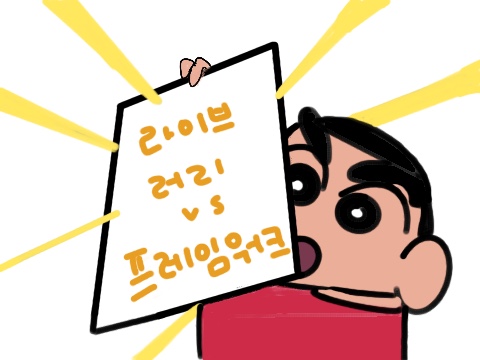 라이브
러리
vs
프레임워크